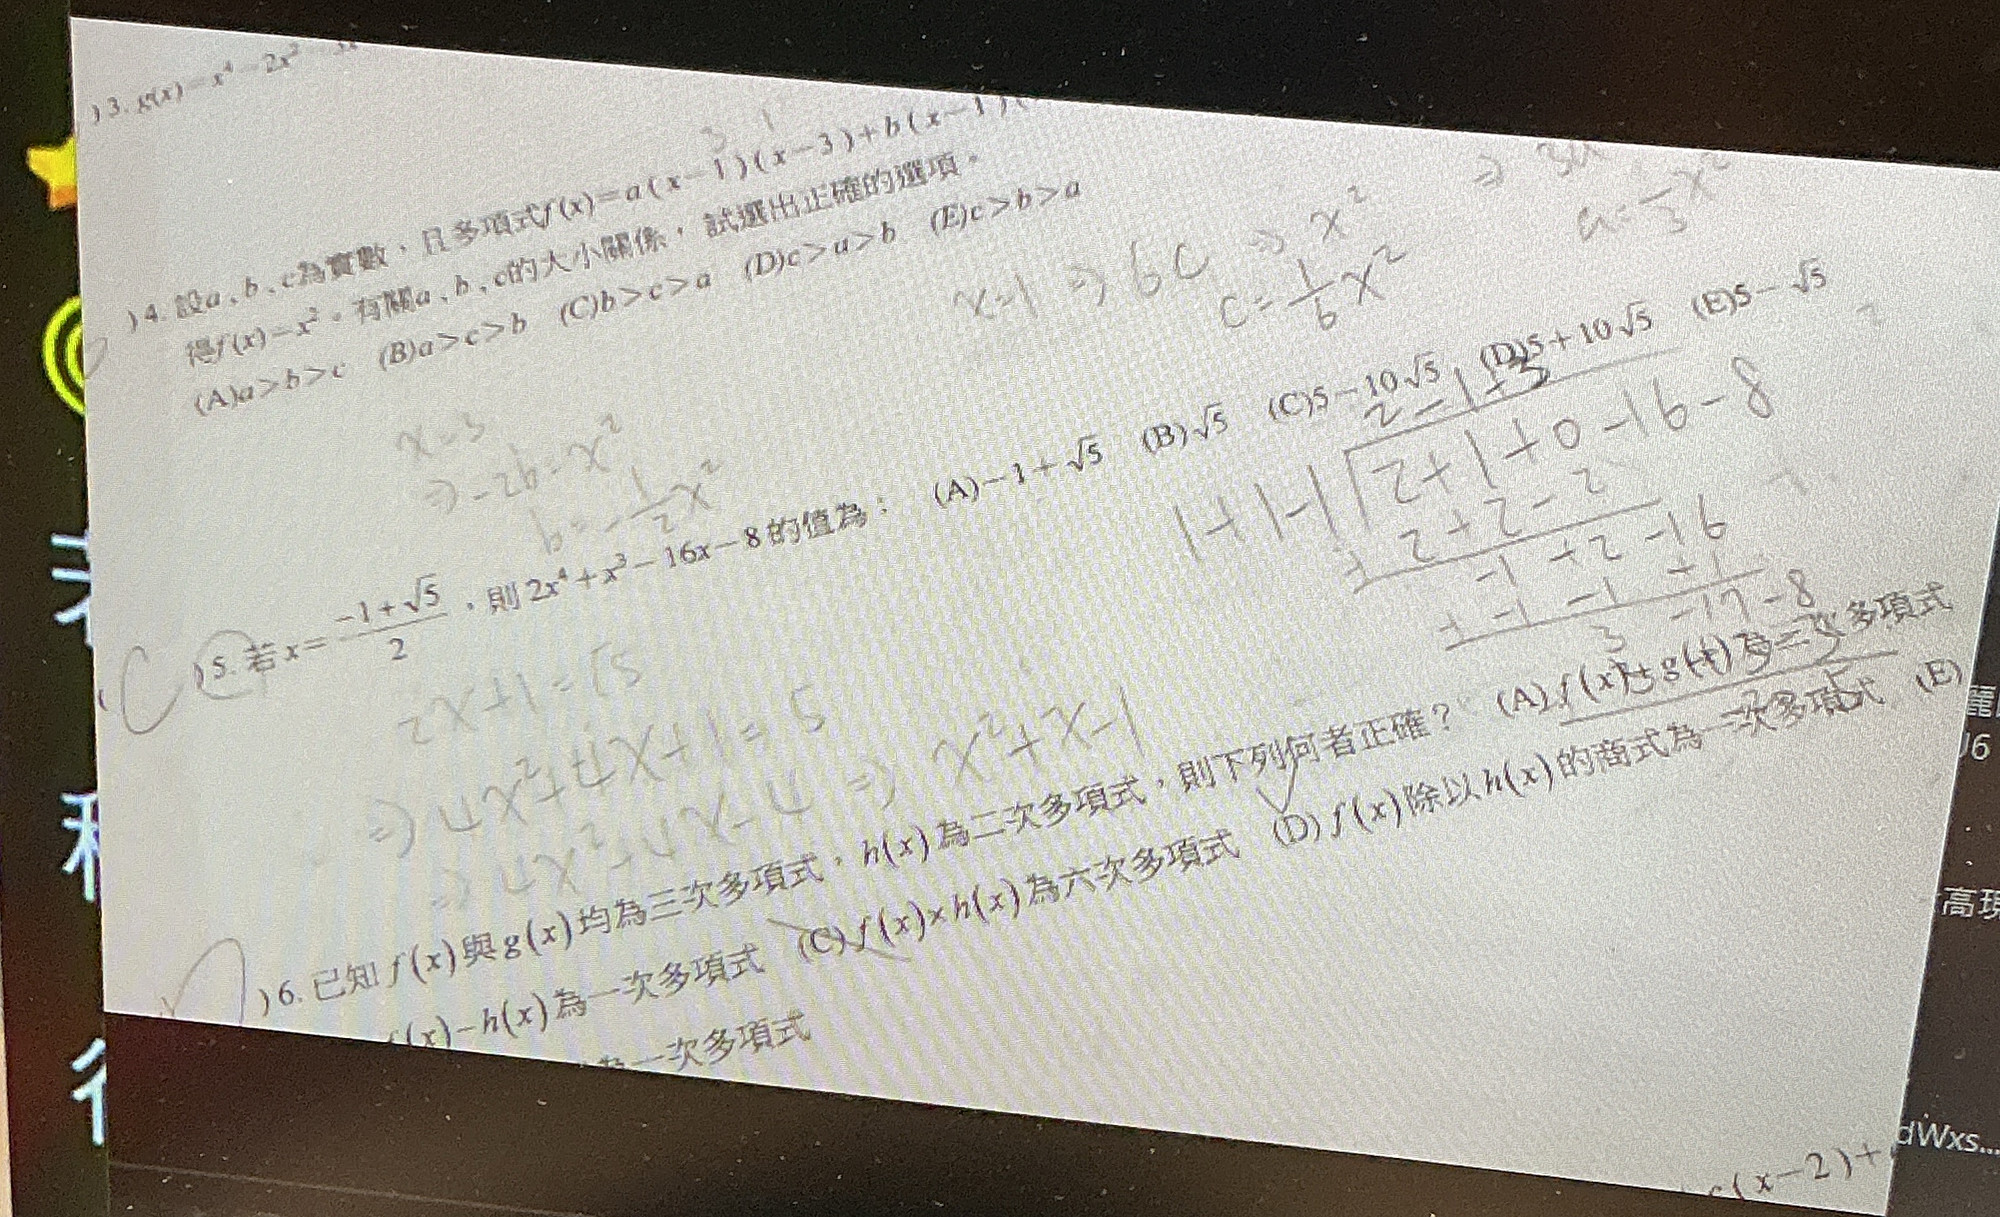 )3. g(x)=x⁴-2x²
)4. 設a、b、c為實數,且多項式f(x)=a(x-1)(x-3)+b(x-1)(
得f(x)=x²。有關a、b、c的大小關係,試選出正確的選項。
(A)a>b>c (B)a>c>b (C)b>c>a (D)c>a>b (E)c>b>a
x=1 ⇒ 6c ⇒ x²
c=1/6x²
a=1/3x²
x=3
⇒ -2b=x²
b=-1/2x²
)5. 若x=(-1+√5)/2,則2x⁴+x³-16x-8的值為: (A)-1+√5 (B)√5 (C)5-10√5 (D)5+10√5 (E)5-√5
C
2x+1=√5
⇒ 4x²+4x+1=5
⇒ 4x²+4x-4 ⇒ x²+x-1
2-1+3
1+1-1 2+1+0-16-8
2+2-2
-1+2-16
-1-1+1
3-17-8
)6. 已知f(x)與g(x)均為三次多項式,h(x)為二次多項式,則下列何者正確? (A)f(x)+g(x)為三次多項式
(x)-h(x)為一次多項式 (C)f(x)×h(x)為六次多項式 (D)f(x)除以h(x)的商式為一次多項式 (E)
為一次多項式
(x-2)+
麗
J6
高現
dWxs...